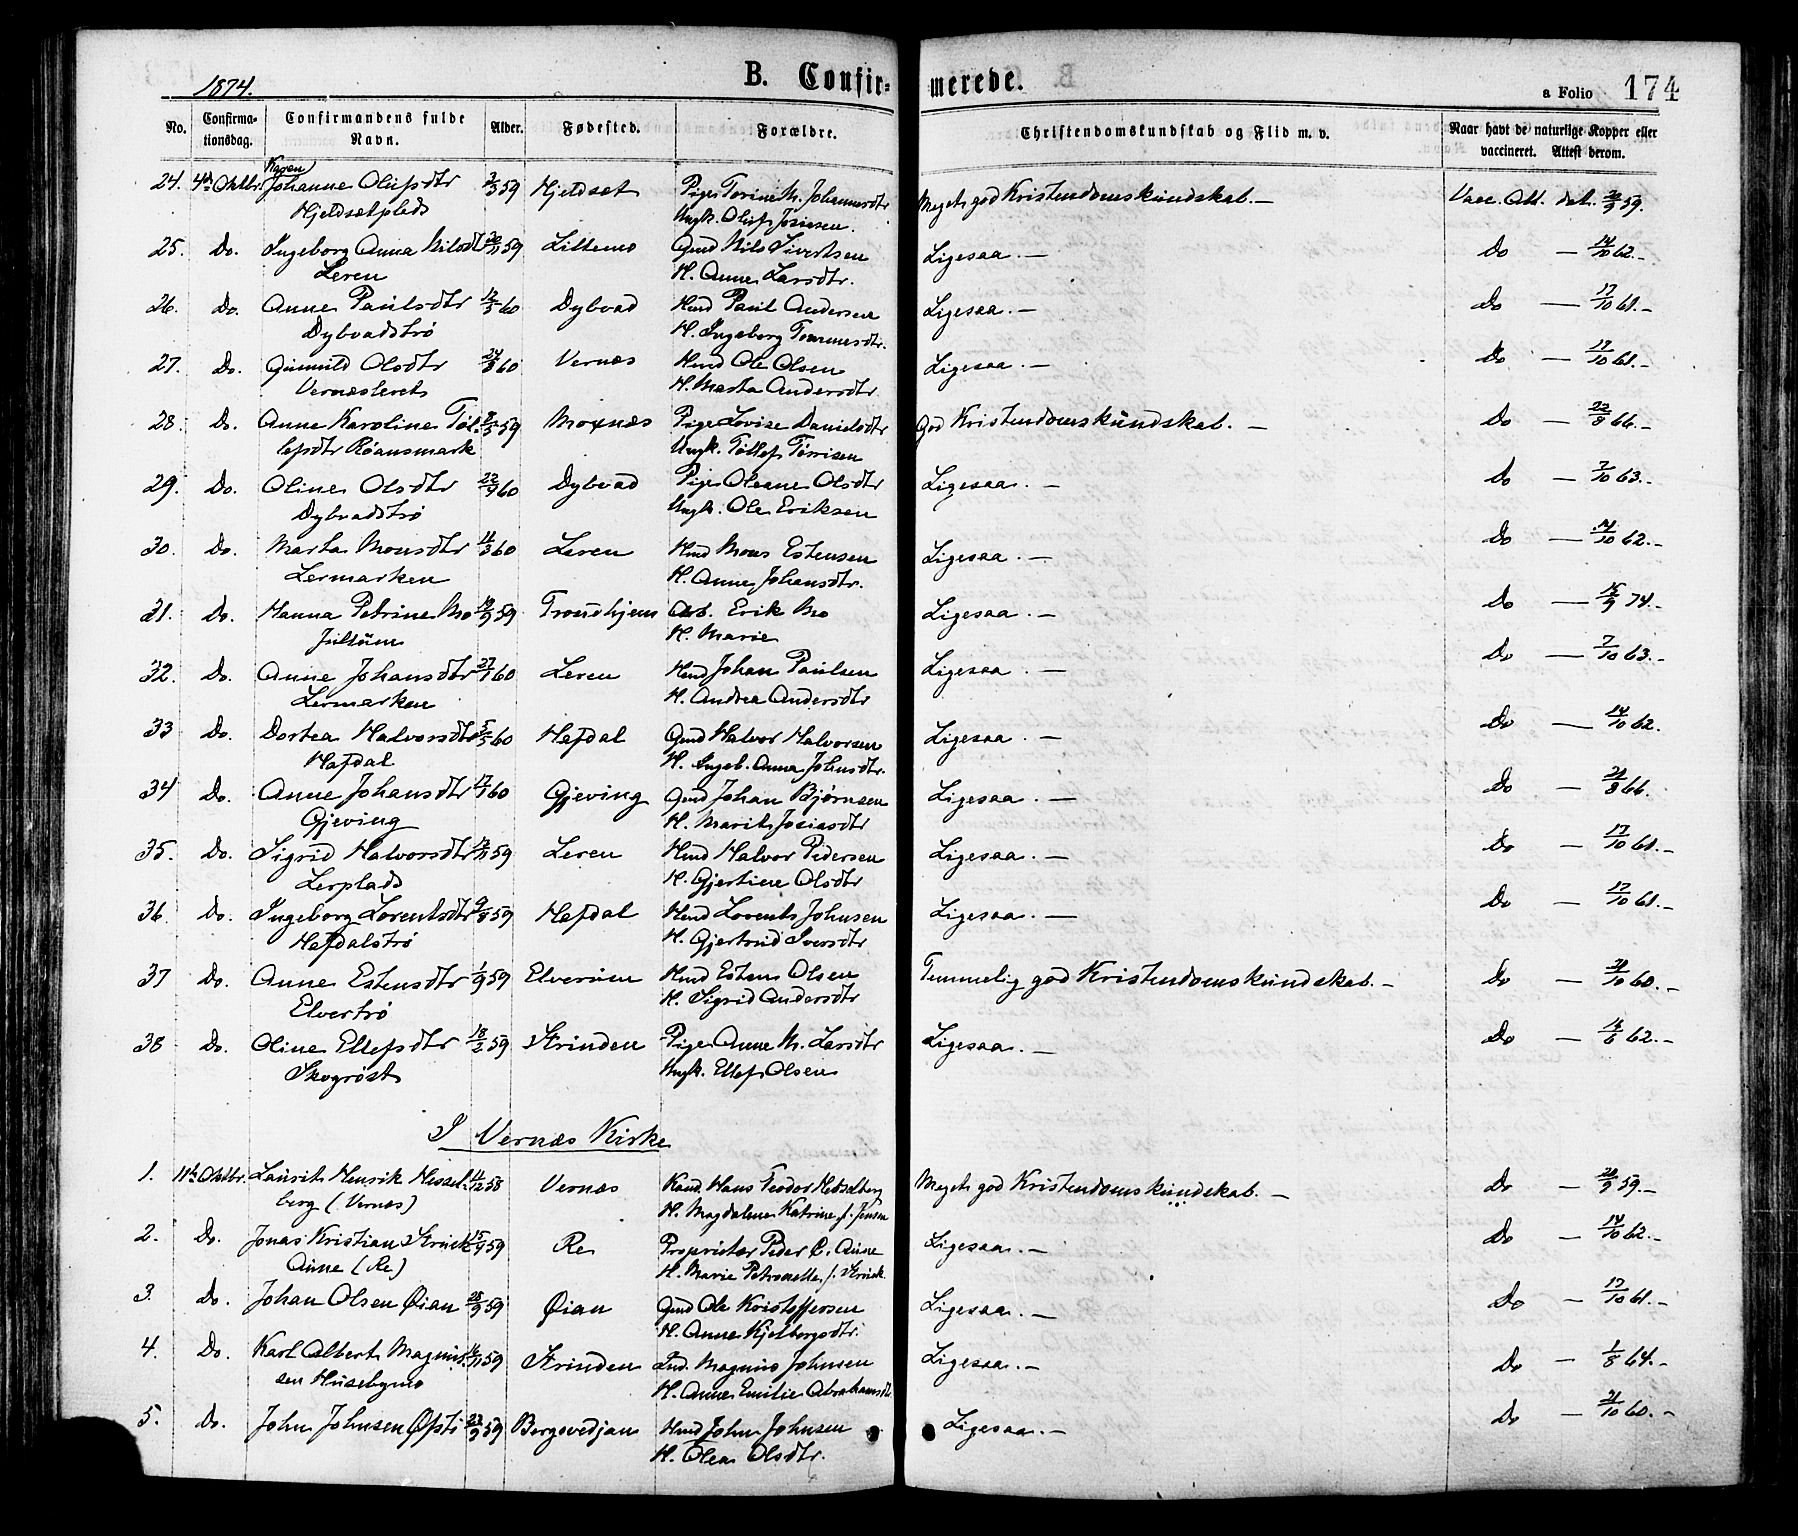 1874.
B. Confir-
merede.
a Folio 174
No.
Confirma-
tionsdag.
Confirmandens fulde
Navn.
Alder.
Fødested.
Forældre.
Christendomskundskab og Flid m. v.
Naar havt de naturlige Kopper eller
vaccineret. Attest derom.
Karen
24. 4de Oktbr. Johanne Olufsdtr 2/3 59 Hjeldset Pige Torine M. Johannesdtr Meget god Kristendomskundskab. — Vacc. Att. dat. 20/9 59.
Hjeldsetplads Ungk. Oluf Josiesen.
25. Do. Ingeborg Anna Nilsdtr 20/11 59 Littemo Gmd Nils Sivertsen Ligesaa. — Do — 14/10 62. –
Leren H. Anne Larsdtr.
26. Do. Anne Paulsdtr 12/3 60 Dybvad Hmd Paul Andersen Ligesaa. — Do — 17/10 61. –
Dybvadstrø H. Ingeborg Tommesdtr.
27. Do. Gunnild Olsdtr 24/8 60 Vernæs Hmd Ole Olsen Ligesaa. — Do — 17/10 61. –
Vernæsleret H. Marta Andersdtr
28. Do. Anne Karoline Tøl- 8/5 59 Moxnæs Pige Lovise Danielsdtr God Kristendomskundskab. — Do — 22/8 66. –
lefsdtr Røansmark Ungk. Tøllef Tørrisen
29. Do. Oline Olsdtr 22/9 60 Dybvad Pige Oleane Olsdtr Ligesaa. — Do — 7/10 63. –
Dybvadstrø Ungk. Ole Eriksen
30. Do. Marta Monsdtr 11/3 60 Leren Hmd Mons Estensen Ligesaa. — Do — 14/10 62. –
Lermarken H. Anne Johansdtr.
31. Do. Hanna Petrine Mo 19/9 59 Trondhjem Arb. Erik Mo Ligesaa. — Do — 15/9 74. –
Julsum H. Marie
32. Do. Anne Johansdtr 27/1 60 Leren Hmd Johan Paulsen Ligesaa. — Do — 7/10 63. –
Lermarken H. Andrea Andersdtr
33 Do. Dortea Halvorsdtr 5/5 60 Hafdal Gmd Halvor Halvorsen Ligesaa. — Do — 14/10 62.
Hafdal H. Ingeb. Anna Johnsdtr.
34 Do. Anne Johansdtr 17/1 60 Gjeving Gmd Johan Bjørnsen Ligesaa. — Do — 21/8 66.
Gjeving H. Marit Josiasdtr
35. Do. Sigrid Halvorsdtr 12/11 59 Leren Hmd Halvor Pedersen Ligesaa. — Do — 17/10 61. –
Lerplads H. Gjertine Olsdtr
36. Do. Ingeborg Lorentsdtr 9/8 59 Hafdal Hmd Lorents Johnsen Ligesaa. — Do — 17/10 61. –
Hafdalstrø H. Gjertrud Iversdtr
37 Do. Anne Estensdtr 1/9 59 Elverøien Hmd Esten Olsen Temmelig god Kristendomskundskab. – Do — 21/10 60. –
Elvertrø H. Sigrid Andersdtr
38 Do. Oline Ellefsdtr 18/2 59 Strinden Pige Anne M. Larsdtr Ligesaa. — Do — 14/8 62. –
Skogrøst Ungk. Ellef Olsen
I Vernæs Kirke
1. 11te Oktbr. Laurits Henrik Hessel- 11/12 58 Vernæs Kand. Hans Teodor Hesselberg Meget god Kristendomskundskab. — Do — 20/9 59. –
berg (Vernæs) H. Magdalene Katrine f. Jensen
2. Do. Jonas Kristian Struck 15/9 59 Re Proprietær Peder C. Aune Ligesaa. — Do — 14/10 62. –
Aune (Re) H. Marie Petronelle f. Struck
3. Do. Johan Olsen Øian 28/9 59 Øian Gmd Ole Kristoffersen Ligesaa. — Do — 17/10 61. –
H. Anne Kjelbergsdtr.
4. Do. Karl Albert Magnus- 16/11 59 Strinden Ind. Magnus Johnsen Ligesaa. — Do — 1/8 64. –
sen Husebymo H. Anne Emilie Abrahamsdtr
5. Do. John Johnsen Øfsti 23/9 59 Borgsvedjan Hmd John Johnsen Ligesaa. — Do — 21/10 60. –
H. Olea Olsdtr.